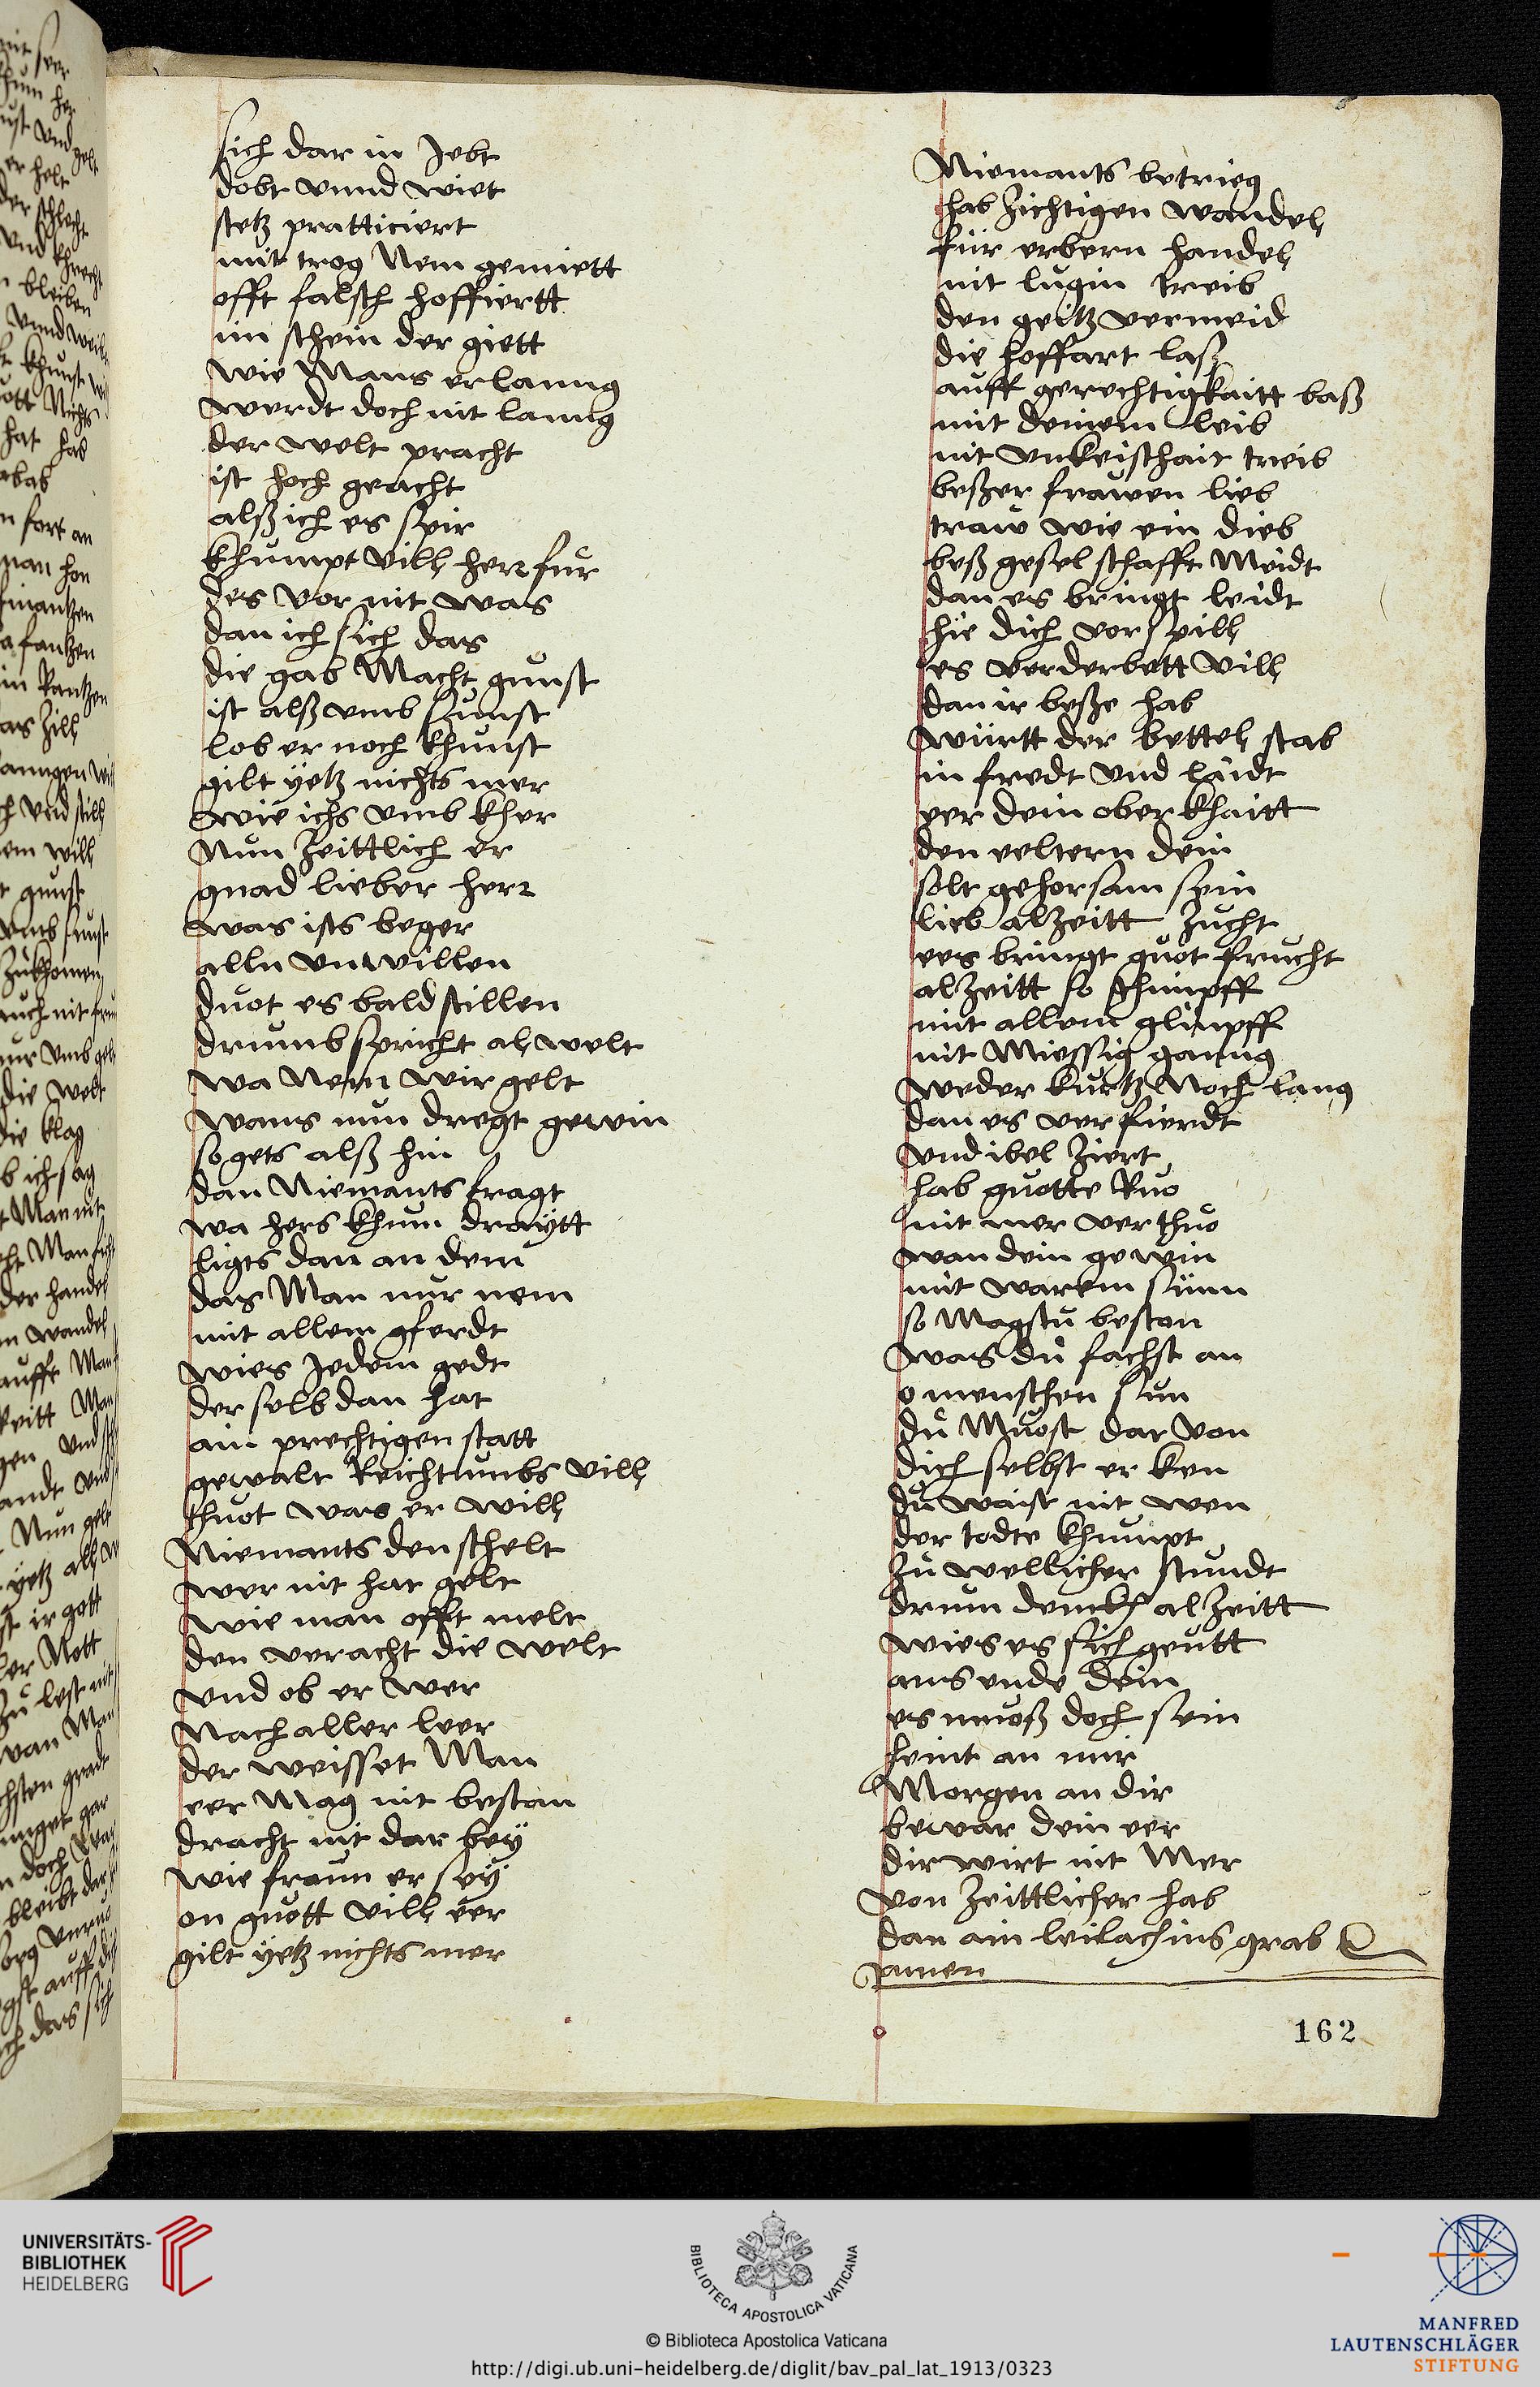 sich dar in Jebt
dobt vnnd wiet
stetz pratticiert
mit trog Nem gemiett
offt falsch hoffiertt
im schein der giett
wie Mans erlanng
werdt doch nit lanng
der welt pracht
ist hoch geacht
alß ich es spir
khumpt vill herr fur
des vor nit was
dan ich sich das
die gab Macht gunst
ist alß vmb sunst
lob er noch khunst
gilt yetz nichts mer
wie ichs vmb kher
Nun Zeittlich er
gnad lieber herr
was ists beger
alln vnwillen
duot es bald stillen
drumb spricht al welt
wa Nem wir gelt
wans nun dregt gewin
so gets alß hin
dan Niemants fragt
wa hers khum draytt
ligts dan an dem
das Man nur nem
mit allem gferdt
wies Jedem gedt
der selb dan hat
ain prechtigen statt
gewalt Reichtumbs vill
thuot was er will
Niemants den schelt
wer nit hat gelt
wie man offt melt
den veracht die welt
vnd ob er wer
Nach aller leer
der weisset Man
eer Mag nit bestan
dracht nit dar bey
wie fraun er sey
on guott vill eer
gilt yetz nichts mer
Niemants betrieg
hab Zichtigen wandel
für erbern handel
nit lugin treib
den geitz vermeid
die hoffart laß
auff gerechtigkaitt baß
mit deinem leib
nit vnkeischait treib
beßer frawen lieb
traw wie ein dieb
beß gesel schafft Meidt
dan es bringt leidt
hie dich vor spill
es verderbett vill
dan ir beße hab
württ der bettel stab
in fredt vnd laidt
eer dein oberkhaitt
den eeltern dein
solt gehorsam sein
lieb alzeitt Zucht
ees bringt guot frucht
alzeitt so schimpff
mit allem glimpff
nit Miessig ganng
weder kurtz Noch lang
dan es verfierdt
vnd ibel Ziert
hab guotte Ruo
nit mer verthuo
wan dein gewin
mit warem sinn
so Magstu bestan
was du fachst an
o menschen sun
du Muost dar von
dich selbst er ken
du waist nit wen
der todte khumpt
Zu wellicher stundt
drum denckh alzeitt
wies es sich geutt
ans ende dein
es muoß doch sein
heint an mir
Morgen an dir
bewar dein eer
dir wirt nit Mer
von Zeittlicher hab
dan ain leilach ins grab
amen
162
UNIVERSITÄTS-
BIBLIOTHEK
HEIDELBERG
BIBLIOTECA APOSTOLICA VATICANA
© Biblioteca Apostolica Vaticana
http://digi.ub.uni-heidelberg.de/diglit/bav_pal_lat_1913/0323
MANFRED
LAUTENSCHLÄGER
STIFTUNG